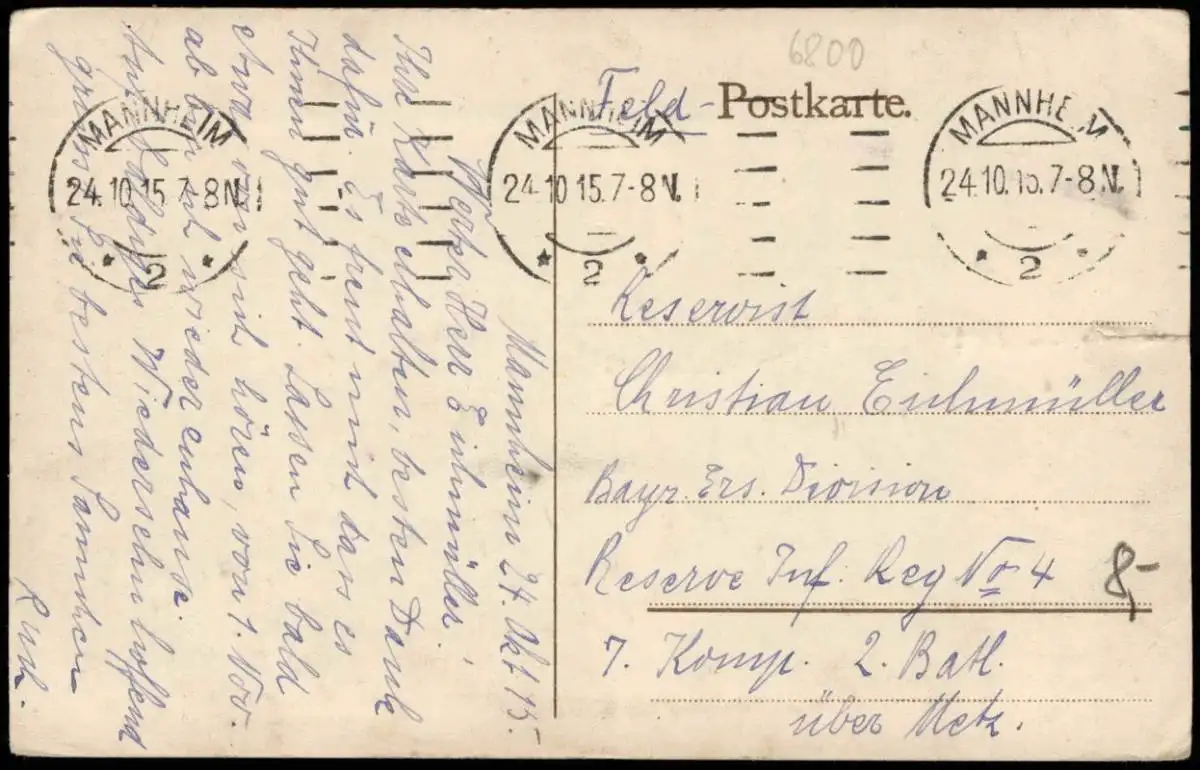 6800
Feld-Postkarte.
MANNHEIM
24.10.15.7-8N.
* 2 *
MANNHEIM
24.10.15.7-8N.
* 2 *
MANNHEIM
24.10.15.7-8N.
* 2 *
Reservist
Christian Eichmüller
Bayr. Ers. Division
Reserve Inf. Reg No 4
7. Komp. 2. Batl.
über Metz.
8,-
Mannheim 24. Okt 15.
Werter Herr Eichmüller!
Ihre Karte erhalten, besten Dank
dafür. Es freut mich dass es
Ihnen gut geht. Lassen Sie bald
etwas von sich hören, vor 1. Nov.
ab bin ich wieder zuhause.
Auf baldiges Wiedersehn hoffend
grüsst Sie bestens